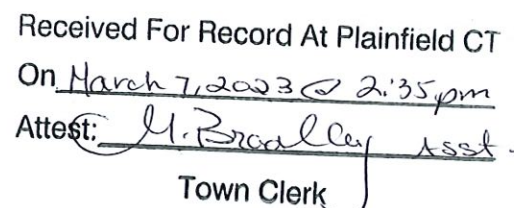 Received For Record At Plainfield CT
On March 7, 2023 @ 2:35 pm
Attest: M. Bradley Asst.
Town Clerk